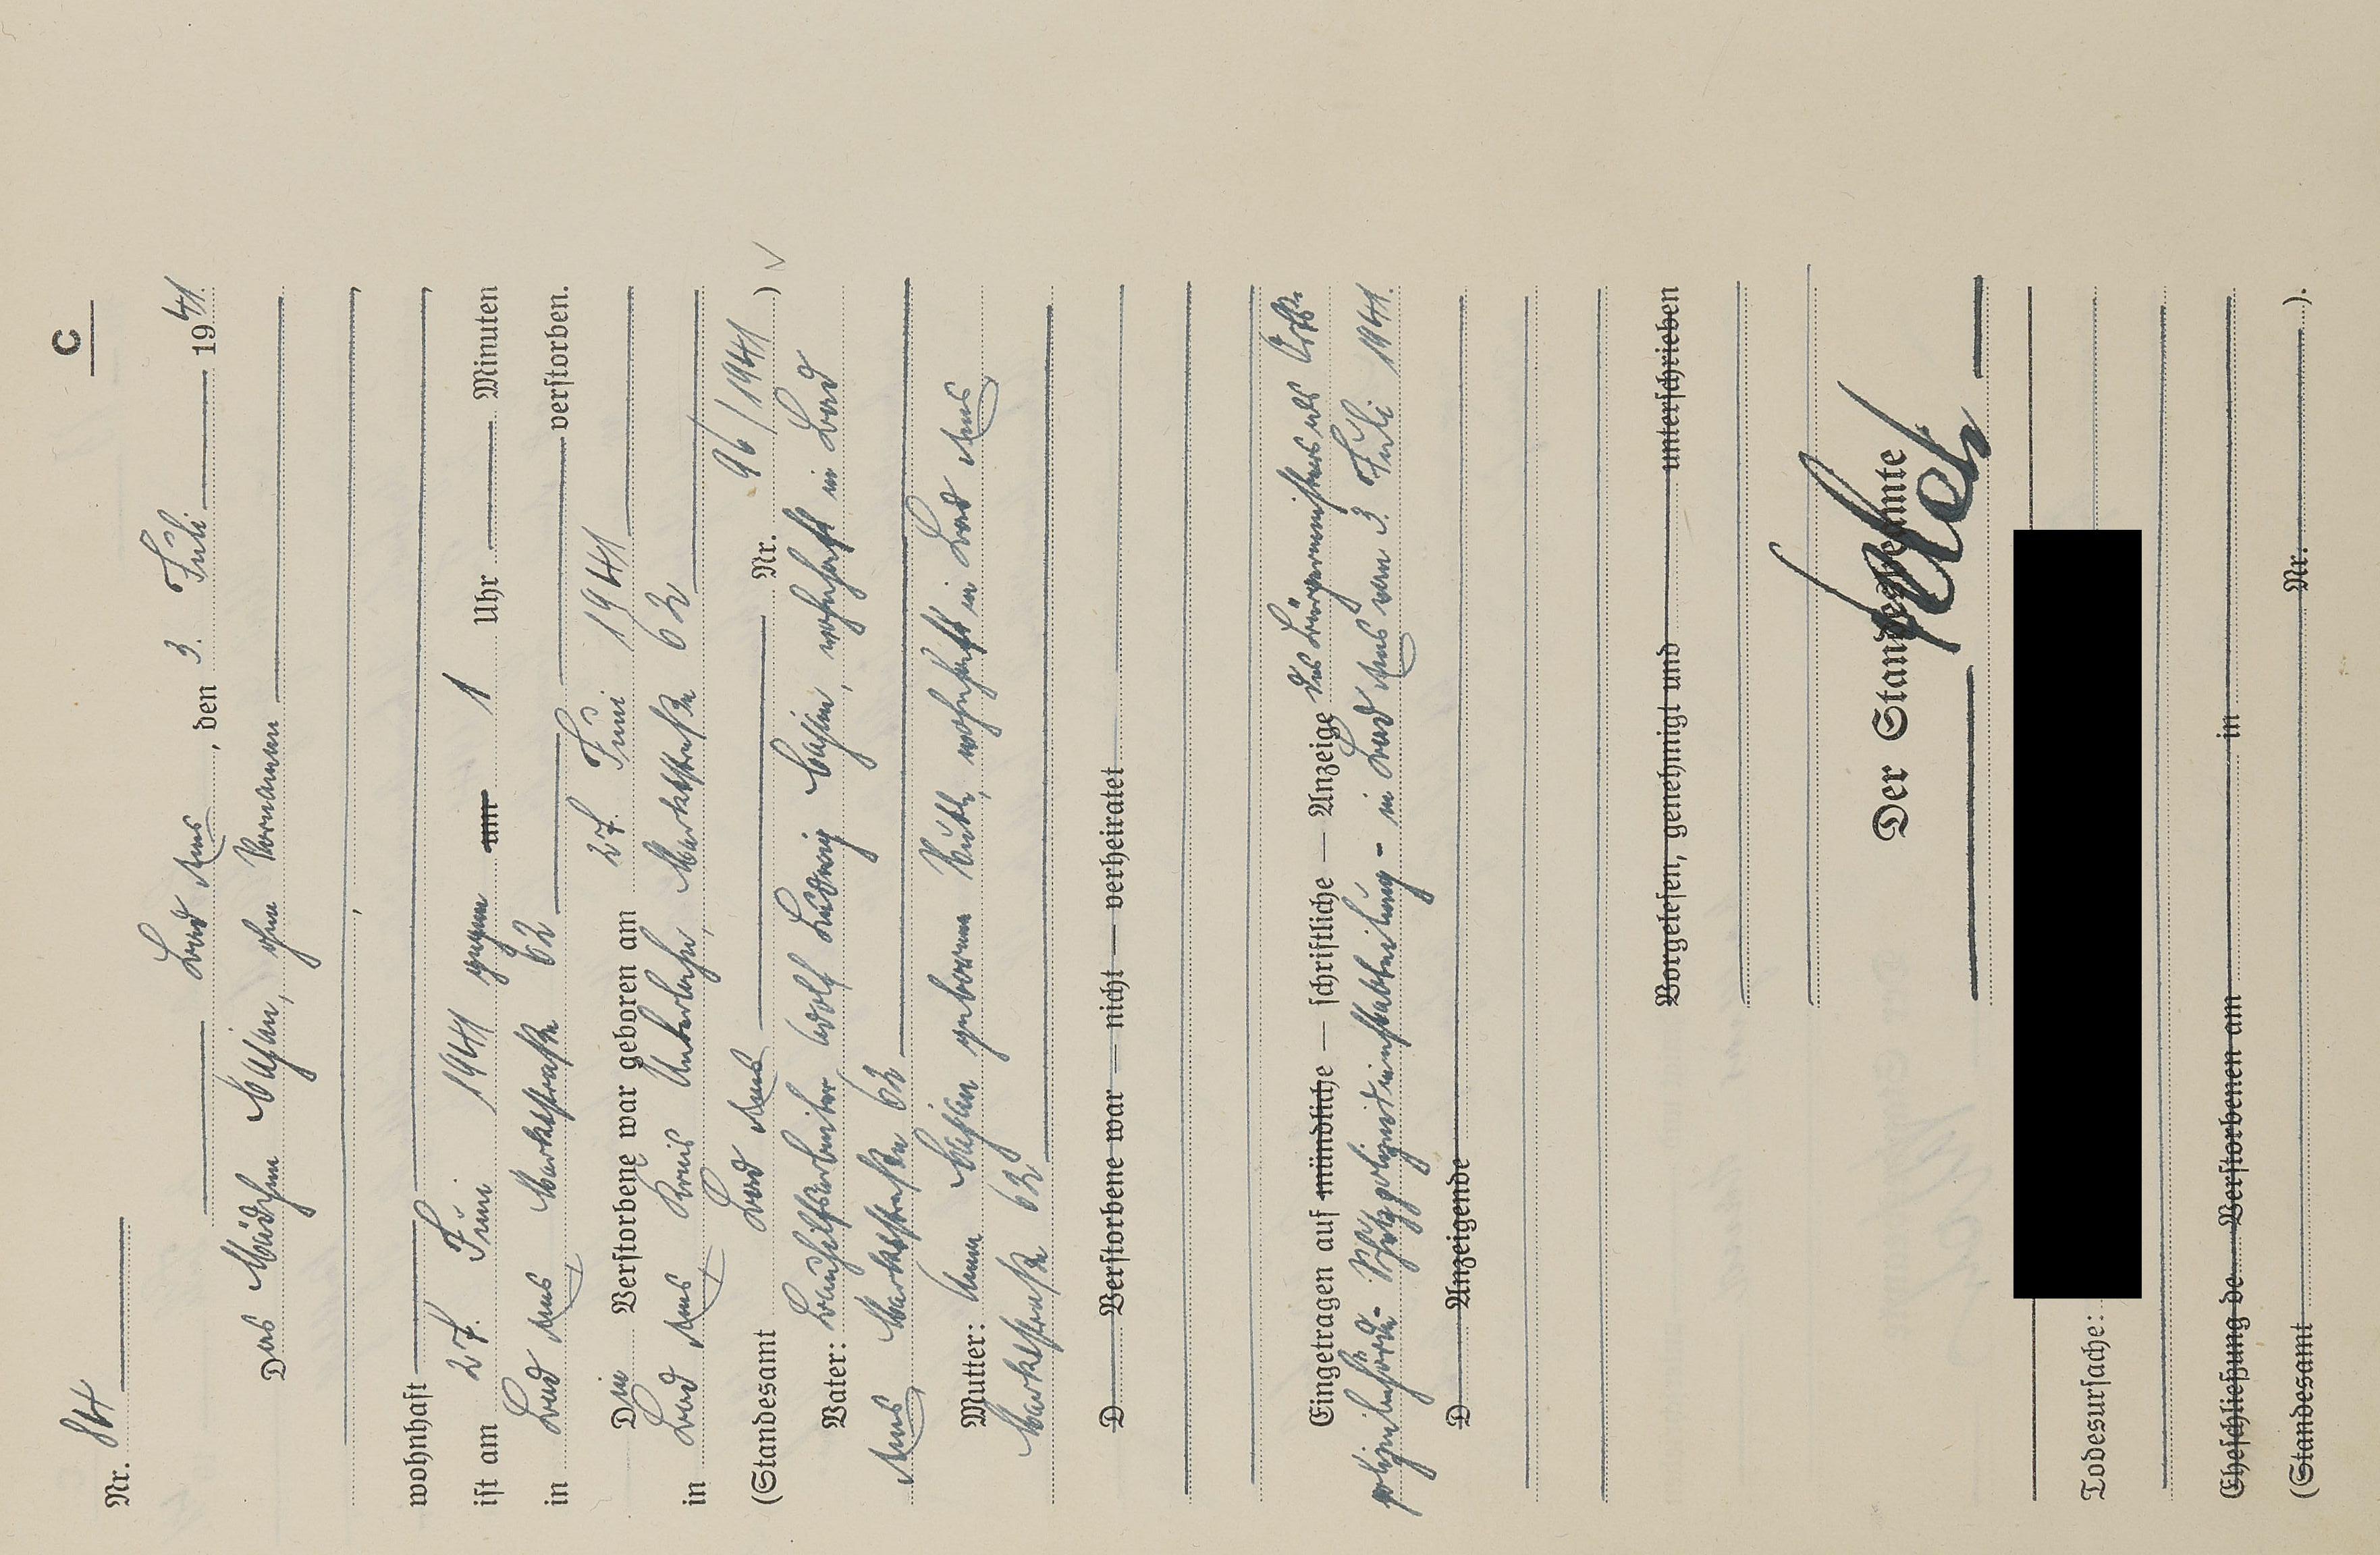 C
Nr. 84
Bad Ems, den 3. Juli 1941.
Das Mädchen ohne Vornamen
wohnhaft
ist am 27. Juni 1941 gegen um 1 Uhr Minuten
in Bad Ems Marktstraße 62 verstorben.
Die Verstorbene war geboren am 27. Juni 1941
in Bad Ems Kreis Unterlahn, Marktstraße 62
(Standesamt Bad Ems Nr. 96/1941)
Vater: Bauhilfsarbeiter Adolf Ludwig wohnhaft in Bad
Ems Marktstraße 62
Mutter: Anna geborene Ruth, wohnhaft in Bad Ems
Marktstraße 62
D Verstorbene war — nicht — verheiratet
Eingetragen auf mündliche — schriftliche — Anzeige des Bürgermeisters als Orts-
polizeibehörde- Schutzpolizeidienstabteilung - in Bad Ems vom 3. Juli 1941.
D Anzeigende
Vorgelesen, genehmigt und unterschrieben
Der Standesbeamte
Todesursache:
Eheschließung de Verstorbenen am in
(Standesamt Nr. ).